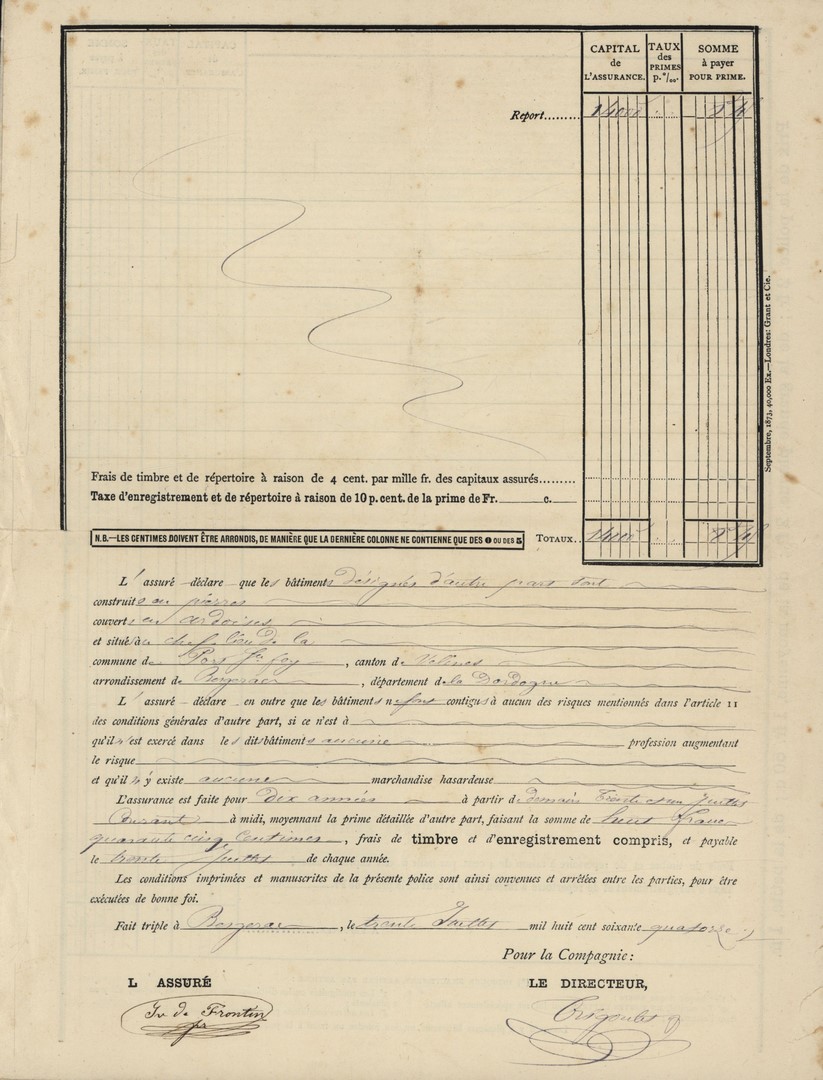 CAPITAL de L'ASSURANCE. TAUX des PRIMES p. ‰. SOMME à payer POUR PRIME.
Report......... 14000 8 45
Septembre, 1873, 40,000 Ex.—Londres: Grant et Cie.
Frais de timbre et de répertoire à raison de 4 cent. par mille fr. des capitaux assurés.........
Taxe d'enregistrement et de répertoire à raison de 10 p. cent. de la prime de Fr. c.
N.B.—LES CENTIMES DOIVENT ÊTRE ARRONDIS, DE MANIÈRE QUE LA DERNIÈRE COLONNE NE CONTIENNE QUE DES 0 OU DES 5 TOTAUX.. 14000 8 45
L' assuré déclare que les bâtiments désignés d'autre part sont
construits en pierres
couverts en ardoises
et situés au chef lieu de la
commune de Port Ste foy, canton de Velines
arrondissement de Bergerac, département de la Dordogne
L' assuré déclare en outre que les bâtiments ne sont contigus à aucun des risques mentionnés dans l'article 11
des conditions générales d'autre part, si ce n'est à
qu'il n'est exercé dans les dits bâtiments aucune profession augmentant
le risque
et qu'il n'y existe aucune marchandise hasardeuse
L'assurance est faite pour Dix années à partir de demain Trente et un Juillet
Courant à midi, moyennant la prime détaillée d'autre part, faisant la somme de huit francs
quarante cinq centimes, frais de timbre et d'enregistrement compris, et payable
le trente Juillet de chaque année.
Les conditions imprimées et manuscrites de la présente police sont ainsi convenues et arrêtées entre les parties, pour être
exécutées de bonne foi.
Fait triple à Bergerac, le trente Juillet mil huit cent soixante quatorze
Pour la Compagnie:
L ASSURÉ LE DIRECTEUR,
de Frontin